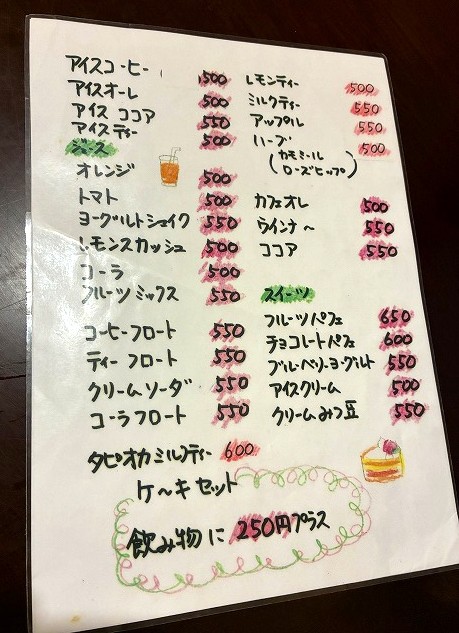 アイスコーヒー 500
アイスオーレ 500
アイス ココア 550
アイスティー 500
ジュース
オレンジ 500
トマト 500
ヨーグルトシェイク 550
レモンスカッシュ 500
コーラ 500
フルーツミックス 550
コーヒーフロート 550
ティーフロート 550
クリームソーダ 550
コーラフロート 550
タピオカミルクティー 600
レモンティー 500
ミルクティー 550
アップル 550
ハーブ 500
(カモミール
ローズヒップ)
カフェオレ 500
ウインナー 550
ココア 550
スイーツ
フルーツパフェ 650
チョコレートパフェ 600
ブルーベリーヨーグルト 550
アイスクリーム 500
クリームみつ豆 550
ケーキセット
飲み物に 250円プラス